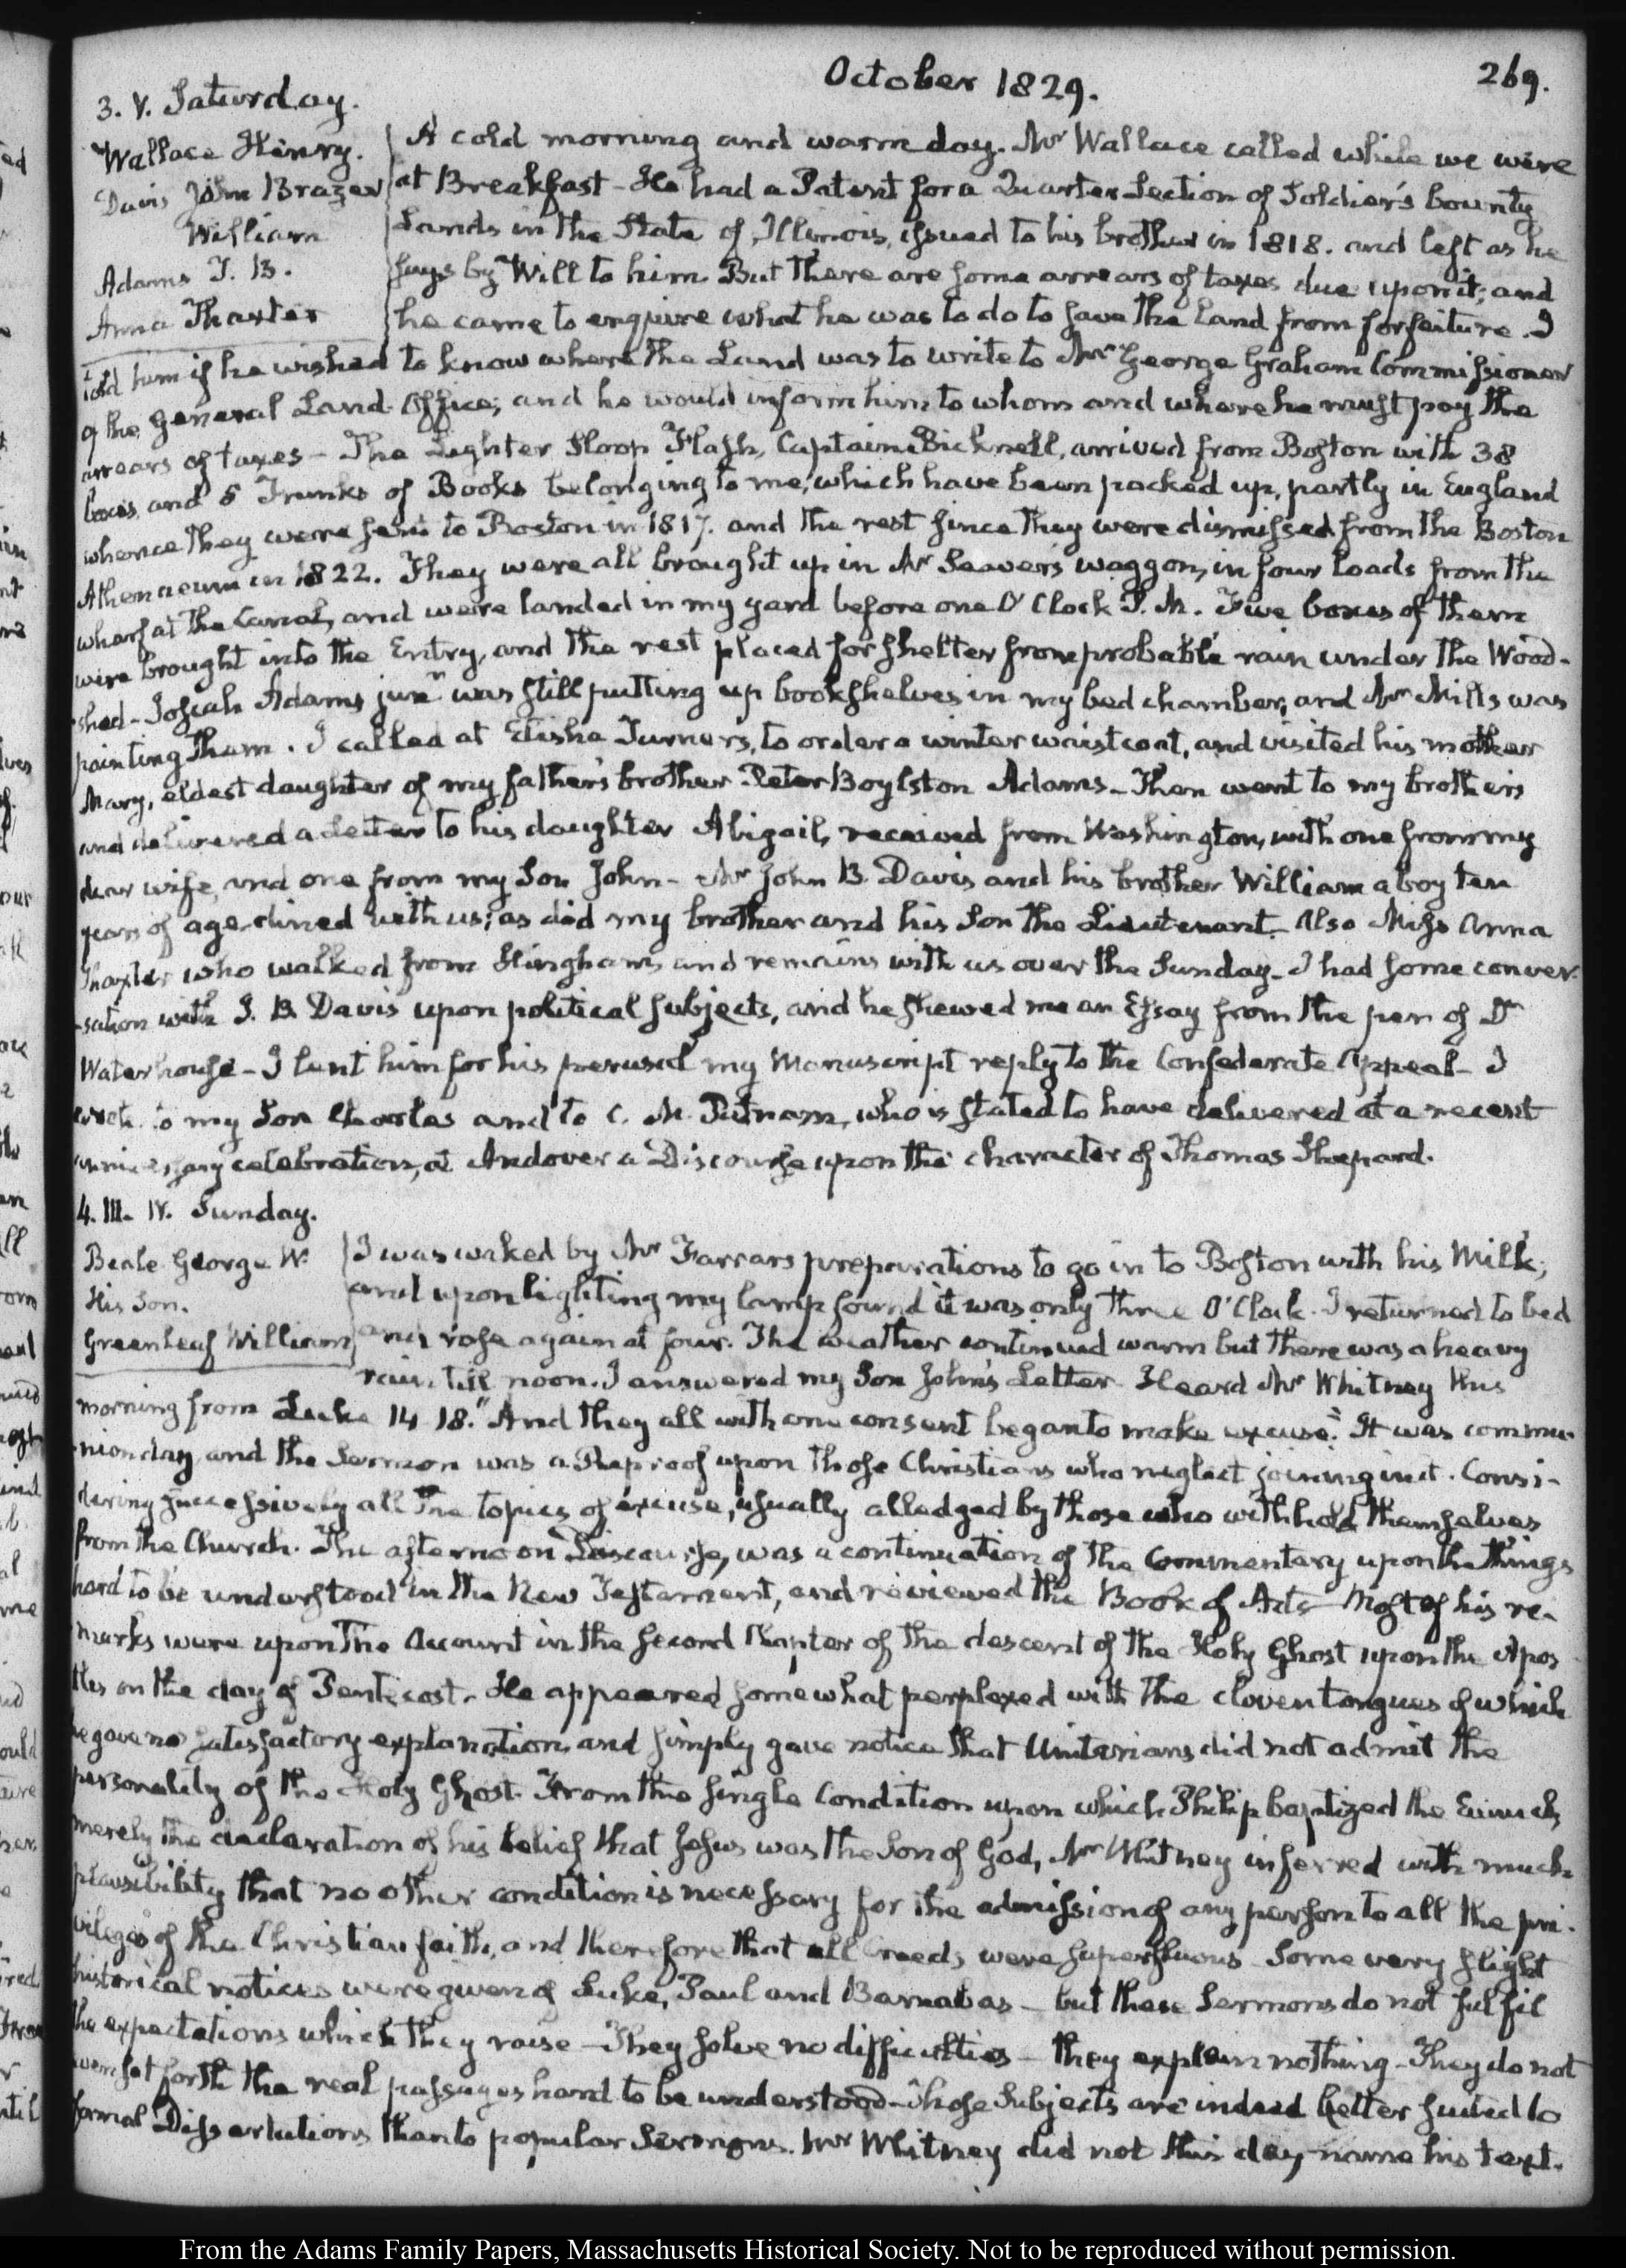 October 1829.
269.
3. V. Saturday.
Wallace Henry.
Davis John Brazer
William
Adams T. B.
Anna Thaxter
A cold morning and warm day. Mr Wallace called while we were
at Breakfast - He had a Patent for a Quarter Section of Soldier's bounty
Lands in the State of Illinois, issued to his brother in 1818. and left as he
says by Will to him. But there are some arrears of taxes due upon it; and
he came to enquire what he was to do to save the Land from forfeiture. I
told him if he wished to know where the Land was to write to Mr George Graham Commissioner
of the General Land-Office; and he would inform him to whom and where he must pay the
arrears of taxes - The Lighter Sloop Flash, Captain Bicknell, arrived from Boston with 38
boxes and 5 Trunks of Books belonging to me, which have been packed up, partly in England
whence they were sent to Boston in 1817. and the rest since they were dismissed from the Boston
Athenaeum in 1822. They were all brought up in Mr Seaver's waggon, in four loads from the
wharf at the Canal, and were landed in my yard before one O'Clock P. M. Five boxes of them
were brought into the Entry, and the rest placed for shelter from probable rain under the Wood-
shed - Josiah Adams junr was still putting up bookshelves in my bed chamber, and Mr Mills was
painting them. I called at Elisha Turner's, to order a winter waistcoat, and visited his mother
Mary, eldest daughter of my father's brother Peter Boylston Adams - Then went to my brother's
and delivered a Letter to his daughter Abigail, received from Washington, with one from my
dear wife, and one from my Son John - Mr John B. Davis and his brother William a boy ten
years of age dined with us; as did my brother and his Son the Lieutenant. Also Miss Anna
Thaxter who walked from Hingham, and remains with us over the Sunday - I had some conver-
-sation with J. B. Davis upon political subjects, and he shewed me an Essay from the pen of Dr
Waterhouse - I lent him for his perusal my Manuscript reply to the Confederate Appeal - I
wrote to my Son Charles and to C. M. Putnam, who is stated to have delivered at a recent
anniversary celebration, at Andover a Discourse upon the character of Thomas Shepard.
4. III. IV. Sunday.
Beale George W.
His Son.
Greenleaf William
I was waked by Mr Farrar's preparations to go in to Boston with his Milk;
and upon lighting my lamp found it was only three O'Clock. I returned to bed
and rose again at four. The weather continued warm but there was a heavy
rain till noon. I answered my Son John's Letter. Heard Mr Whitney this
morning from Luke 14. 18. "And they all with one consent began to make excuse." It was commu-
nion day and the Sermon was a Reproof upon those Christians who neglect joining in it. Consi-
dering successively all the topics of excuse, usually alledged by those who withhold themselves
from the Church. The afternoon Discourse, was a continuation of the Commentary upon the things
hard to be understood in the New Testament, and reviewed the Book of Acts - Most of his re-
marks were upon the Account in the second Chapter of the descent of the Holy Ghost upon the Apos
tles on the day of Pentecost - He appeared somewhat perplexed with the cloven tongues of which
he gave no satisfactory explanation, and simply gave notice that Unitarians did not admit the
personality of the Holy Ghost. From the single Condition upon which Philip baptized the Eunuch,
merely the declaration of his belief that Jesus was the Son of God, Mr Whitney inferred with much
plausibility that no other condition is necessary for the admission of any person to all the pri-
vileges of the Christian faith, and therefore that all Creeds were superfluous. Some very slight
historical notices were given of Luke, Paul and Barnabas - but these Sermons do not fulfil
the expectations which they raise - They solve no difficulties - they explain nothing - They do not
even set forth the real passages hard to be understood - Those Subjects are indeed better suited to
formal Dissertations than to popular Sermons. Mr Whitney did not this day name his text.
From the Adams Family Papers, Massachusetts Historical Society. Not to be reproduced without permission.